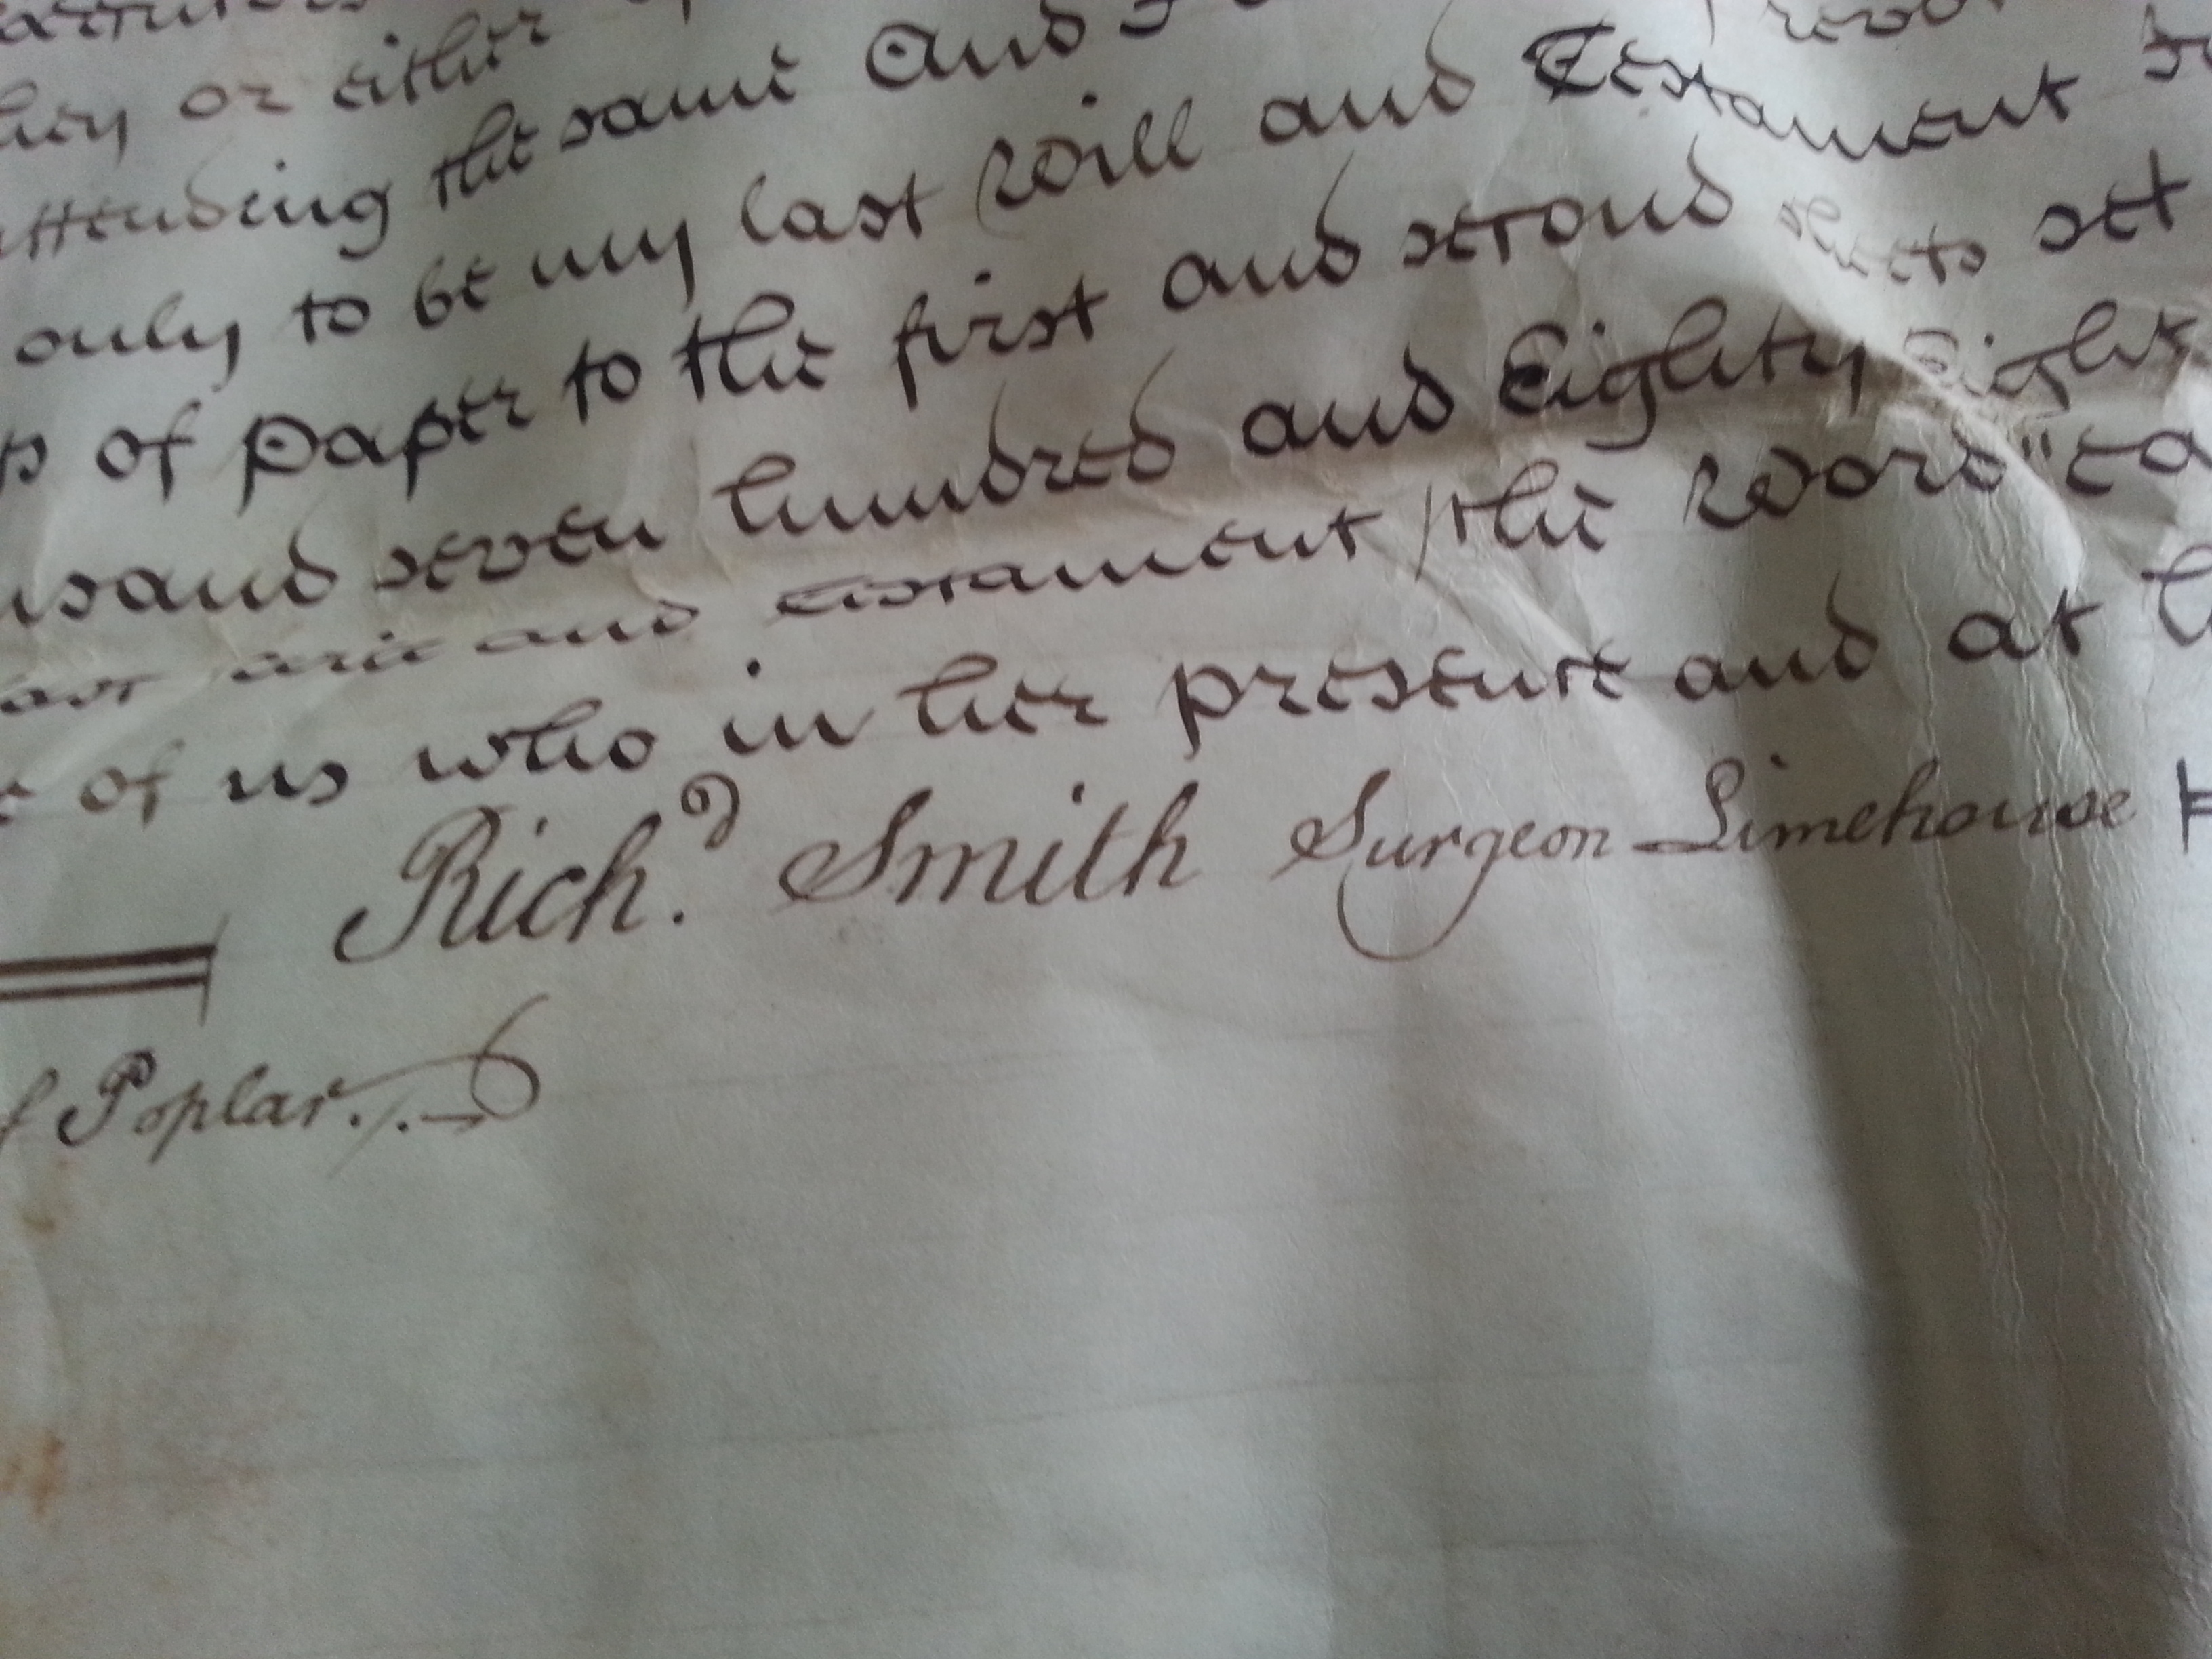 they or either
attending the same And I
only to be my last Will and Testament
of Paper to the first and second sheets set
seven hundred and Eighty Eight
and testament /the Word "ca
of us who in her presence and at
Rich.d Smith Surgeon Limehouse
of Poplar